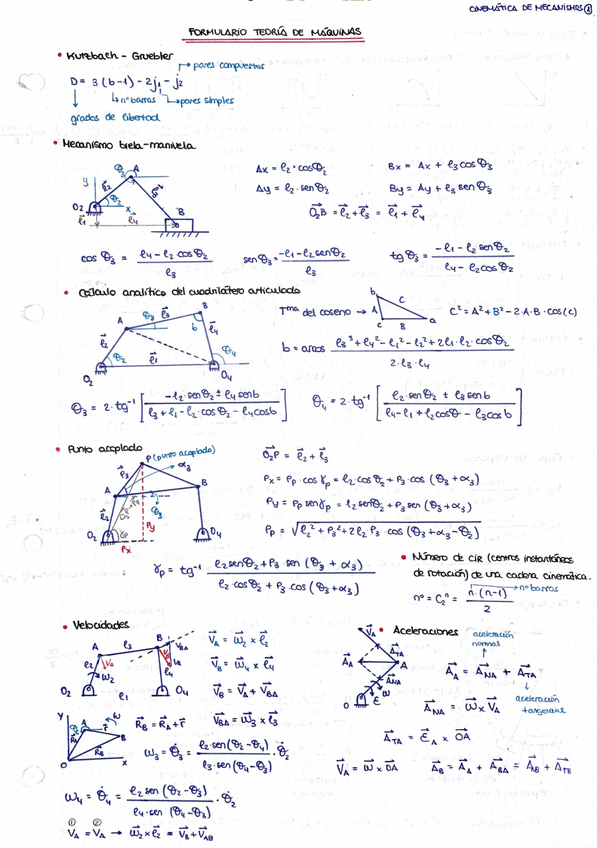 CINEMÁTICA DE MECANISMOS ①
FORMULARIO TEORÍA DE MÁQUINAS
• Kutzbach - Gruebler
pares compuestos
D = 3 (b-1) - 2j₁ - j₂
nº barras
pares simples
grados de libertad
• Mecanismo biela-manivela
Ax = l₂ · cosθ₂
Bx = Ax + l₃ cosθ₃
Ay = l₂ · senθ₂
By = Ay + l₃ senθ₃
O₂B = l₂ + l₃ = l₁ + l₄
cos θ₃ = (l₄ - l₂ cosθ₂) / l₃
sen θ₃ = (-l₁ - l₂ senθ₂) / l₃
tg θ₃ = (-l₁ - l₂ senθ₂) / (l₄ - l₂ cosθ₂)
• Cálculo analítico del cuadrilátero articulado
Tᵐᵃ del coseno → C² = A² + B² - 2·A·B·cos(c)
b = arcos (l₃³ + l₄² - l₁² - l₂² + 2l₁·l₂·cosθ₂) / (2·l₃·l₄)
θ₃ = 2·tg⁻¹ [(-l₂·senθ₂ ± l₄ senb) / (l₃ + l₁ - l₂·cosθ₂ - l₄cosb)]
θ₄ = 2·tg⁻¹ [(l₂·senθ₂ ± l₃senb) / (l₄ - l₁ + l₂cosθ - l₃cosb)]
• Punto acoplado
P (punto acoplado)
O₂P = l₂ + l₃
Px = Pp · cos γp = l₂ cosθ₂ + P₃ · cos (θ₃ + α₃)
Py = Pp senγp = l₂ senθ₂ + P₃ sen (θ₃ + α₃)
Pp = √(l₂² + P₃² + 2l₂ P₃ · cos (θ₃ + α₃ - θ₂))
γp = tg⁻¹ (l₂senθ₂ + P₃ · sen (θ₃ + α₃)) / (l₂·cosθ₂ + P₃ · cos (θ₃ + α₃))
• Número de CIR (centros instantáneos
de rotación) de una cadena cinemática.
nº barras
nº = C₂ⁿ = n·(n-1) / 2
• Velocidades
V_A = ω₂ x l₂
V_B = ω₄ x l₄
V_B = V_A + V_BA
V_BA = ω₃ x l₃
R_B = R_A + r
ω₃ = θ̇₃ = (l₂·sen(θ₂-θ₄)) / (l₃·sen(θ₄-θ₃)) · θ̇₂
ω₄ = θ̇₄ = (l₂ sen (θ₂-θ₃)) / (l₄·sen (θ₄-θ₃)) · θ̇₂
① ②
V_A = V_A → ω₂ x l₂ = V_B + V_AB
• Aceleraciones
aceleración
normal
A_A = A_NA + A_TA
aceleración
tangencial
A_NA = ω x V_A
A_TA = ε_A x OA
V_A = ω x OA
A_B = A_A + A_BA = A_AB + A_TB